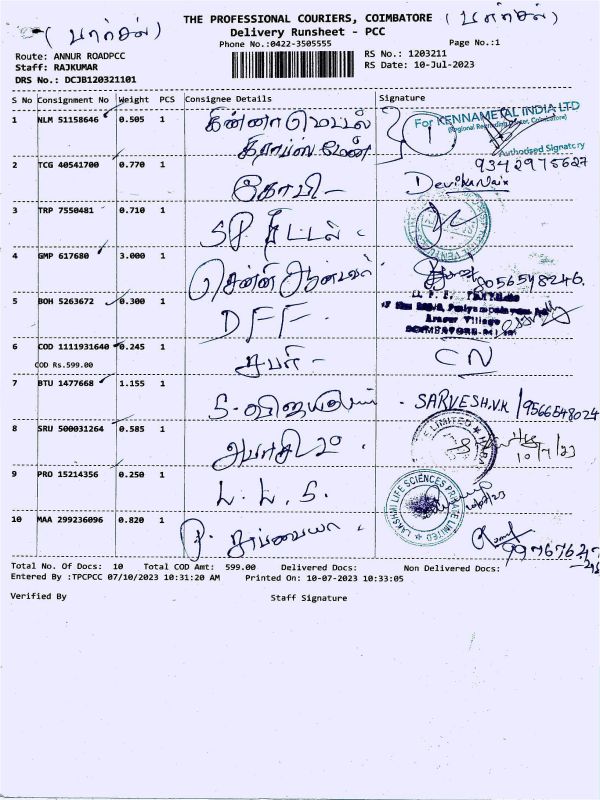 (பார்சல்)
THE PROFESSIONAL COURIERS, COIMBATORE (பார்சல்)
Delivery Runsheet - PCC
Phone No.:0422-3505555
Page No.:1
Route: ANNUR ROADPCC
Staff: RAJKUMAR
DRS No.: DCJB120321101
RS No.: 1203211
RS Date: 10-Jul-2023
S No Consignment No Weight PCS Consignee Details Signature
1 NLM 51158646 0.505 1 கென்னாமெட்டல்
For KENNAMETAL INDIA LTD
Authorised Signatory
2 TCG 40541700 0.770 1 கோபி -
9342975627
Devika Nair
3 TRP 7550481 0.710 1 SP.
4 GMP 617680 3.000 1
9056548246.
5 BOH 5263672 0.300 1 DFF.
Annur Village
COIMBATORE
6 COD 1111931640 0.245 1 சபரி - CN
COD Rs.599.00
7 BTU 1477668 1.155 1 S. - SARVESH.V.K / 9566548024
8 SRU 500031264 0.585 1
LIMITED
10/7/23
9 PRO 15214356 0.250 1 L. L. S.
LAKSHMI LIFE SCIENCES PRIVATE LIMITED
10 MAA 299236096 0.820 1 P.
Total No. Of Docs: 10 Total COD Amt: 599.00 Delivered Docs: Non Delivered Docs:
Entered By :TPCPCC 07/10/2023 10:31:20 AM Printed On: 10-07-2023 10:33:05
Verified By Staff Signature